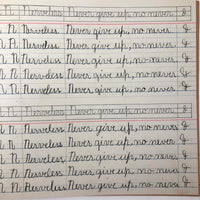 N Nerveless Never give up, no never. I
N N Nerveless Never give up, no never. I
N N Nerveless Never give up, no never. I
N N Nerveless Never give up, no never. I
N N Nerveless Never give up, no never. I
N N Nerveless Never give up, no never. I
N Nerveless Never give up, no never. I
N N Nerveless Never give up, no never. I
N N Nerveless Never give up, no never. I
N N Nerveless Never give up, no never. I
N N Nerveless Never give up, no never. I
N N Nerveless Never give up, no never. I